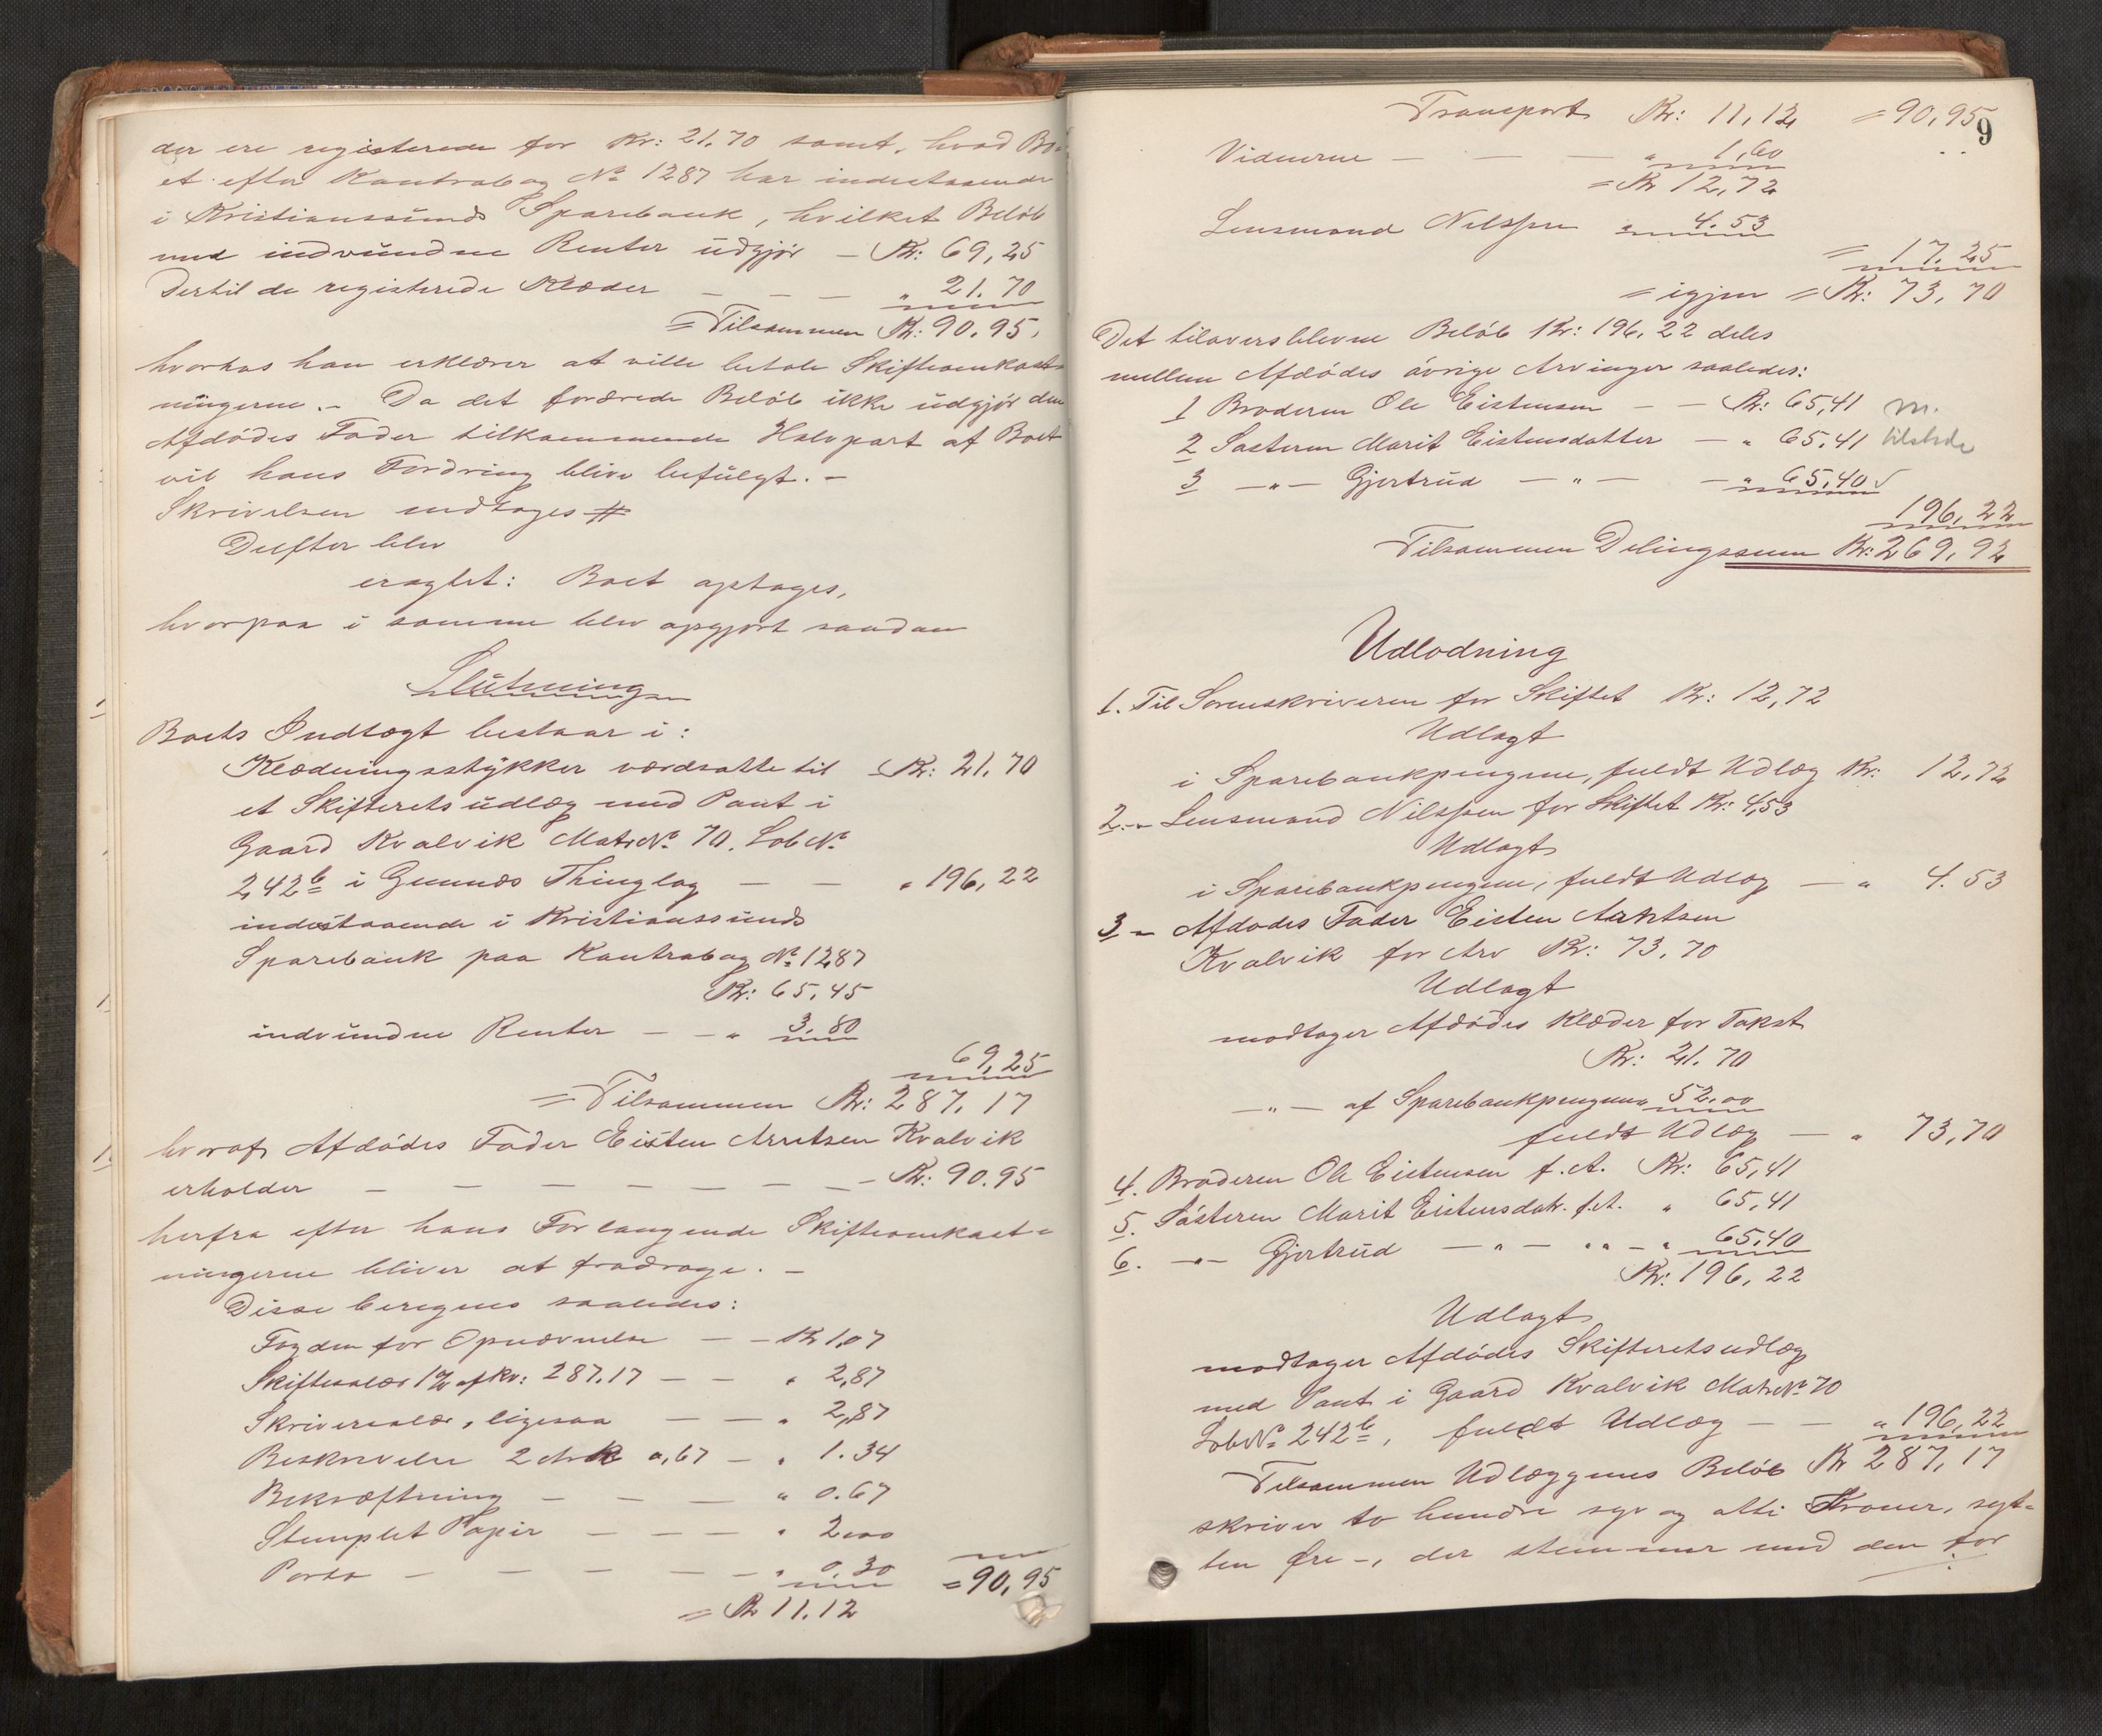 der ere registerede for Kr: 21.70 samt, hvad Bo-
et efter Kontrabog No 1287 har indestaaende
i Kristianssunds Sparebank, hvilket Beløb
med indvundne Renter udgjør – Kr: 69,25
Dertil de registerede Klæder – – – " 21.70
= Tilsammen Kr: 90.95,
hvorhos han erklærer at ville betale Skifteomkost-
ningerne. – Da det forærede Beløb ikke udgjør den
Afdødes Fader tilkommende Halvpart af Boet
vil hans Fordring blive befulgt. –
Skrivelsen modtages #
Derefter blev
eragtet: Boet optages,
hvorpaa i samme blev opgjort saadan
Slutning
Boets Indtægt bestaar i:
Klædningsstykker værdsatte til – Kr: 21.70
et Skifteretsudlæg med Pant i
Gaard Kvalvik Matr.No 70. Løb No
242b i Gumnæs Thinglag – – " 196,22
indestaaende i Kristianssunds
Sparebank paa Kontrabog No 1287
Kr: 65,45
indvundne Renter – – " 3,80
69,25
= Tilsammen Kr: 287.17
hvoraf Afdødes Fader Eisten Arntsen Kvalvik
erholder – – – – – – – Kr: 90.95
herfra efter hans Forlangende Skifteomkost-
ningerne bliver at fradrage. –
Disse beregnes saaledes:
Fogden for Opnævnelse – – Kr 1,07
Skiftesalær 1% af Kr: 287.17 – – " 2,87
Skriversalær, ligesaa – – " 2,87
Beskrivelse 2 Ark a,67 – " 1.34
Bekræftning – – – " 0.67
Stemplet Papir – – – " 2,00
Porto – – – – – " 0.30 = 90,95
= Kr 11.12
9
Transport Kr: 11,12 = 90,95
Vidnerne – – – " 1,60
= Kr 12,72
Lensmand Nilssen " 4.53
= 17.25
= igjen = Kr: 73,70
Det tiloversblevne Beløb Kr: 196,22 deles
mellem Afdødes øvrige Arvinger saaledes:
1 Broderen Ole Eistensen – – Kr: 65,41 m.
2 Søsteren Marit Eistensdatter – " 65,41 tilstede
3 –"– Gjertrud –"– – " 65,40 √
196,22
Tilsammen Delingssum Kr: 269,92
Udlodning
1. Til Sorenskriveren for Skiftet Kr: 12,72
Udlagt
i Sparebankpengene, fuldt Udlæg Kr: 12,72
2. – Lensmand Nilssen for Skiftet Kr: 4,53
Udlagt
i Sparebankpengene, fuldt Udlæg – " 4.53
3 – Afdødes Fader Eisten Arntsen
Kvalvik for Arv Kr: 73,70
Udlagt
modtager Afdødes Klæder for Takst
Kr: 21.70
–"– af Sparebankpengene 52,00
fuldt Udlæg – " 73,70
4. Broderen Ole Eistensen f.A. Kr: 65,41
5. Søsteren Marit Eistensdatr. f.A. " 65,41
6. –"– Gjertrud –"– "" – " 65,40
Kr: 196,22
Udlagt
modtager Afdødes Skifteretsudlæg
med Pant i Gaard Kvalvik Matr.No 70
Løb No 242b, fuldt Udlæg – – " 196,22
Tilsammen Udlæggenes Beløb Kr 287,17
skriver to hundre syv og otti Kroner, syt-
ten Øre –, der stemmer med den for